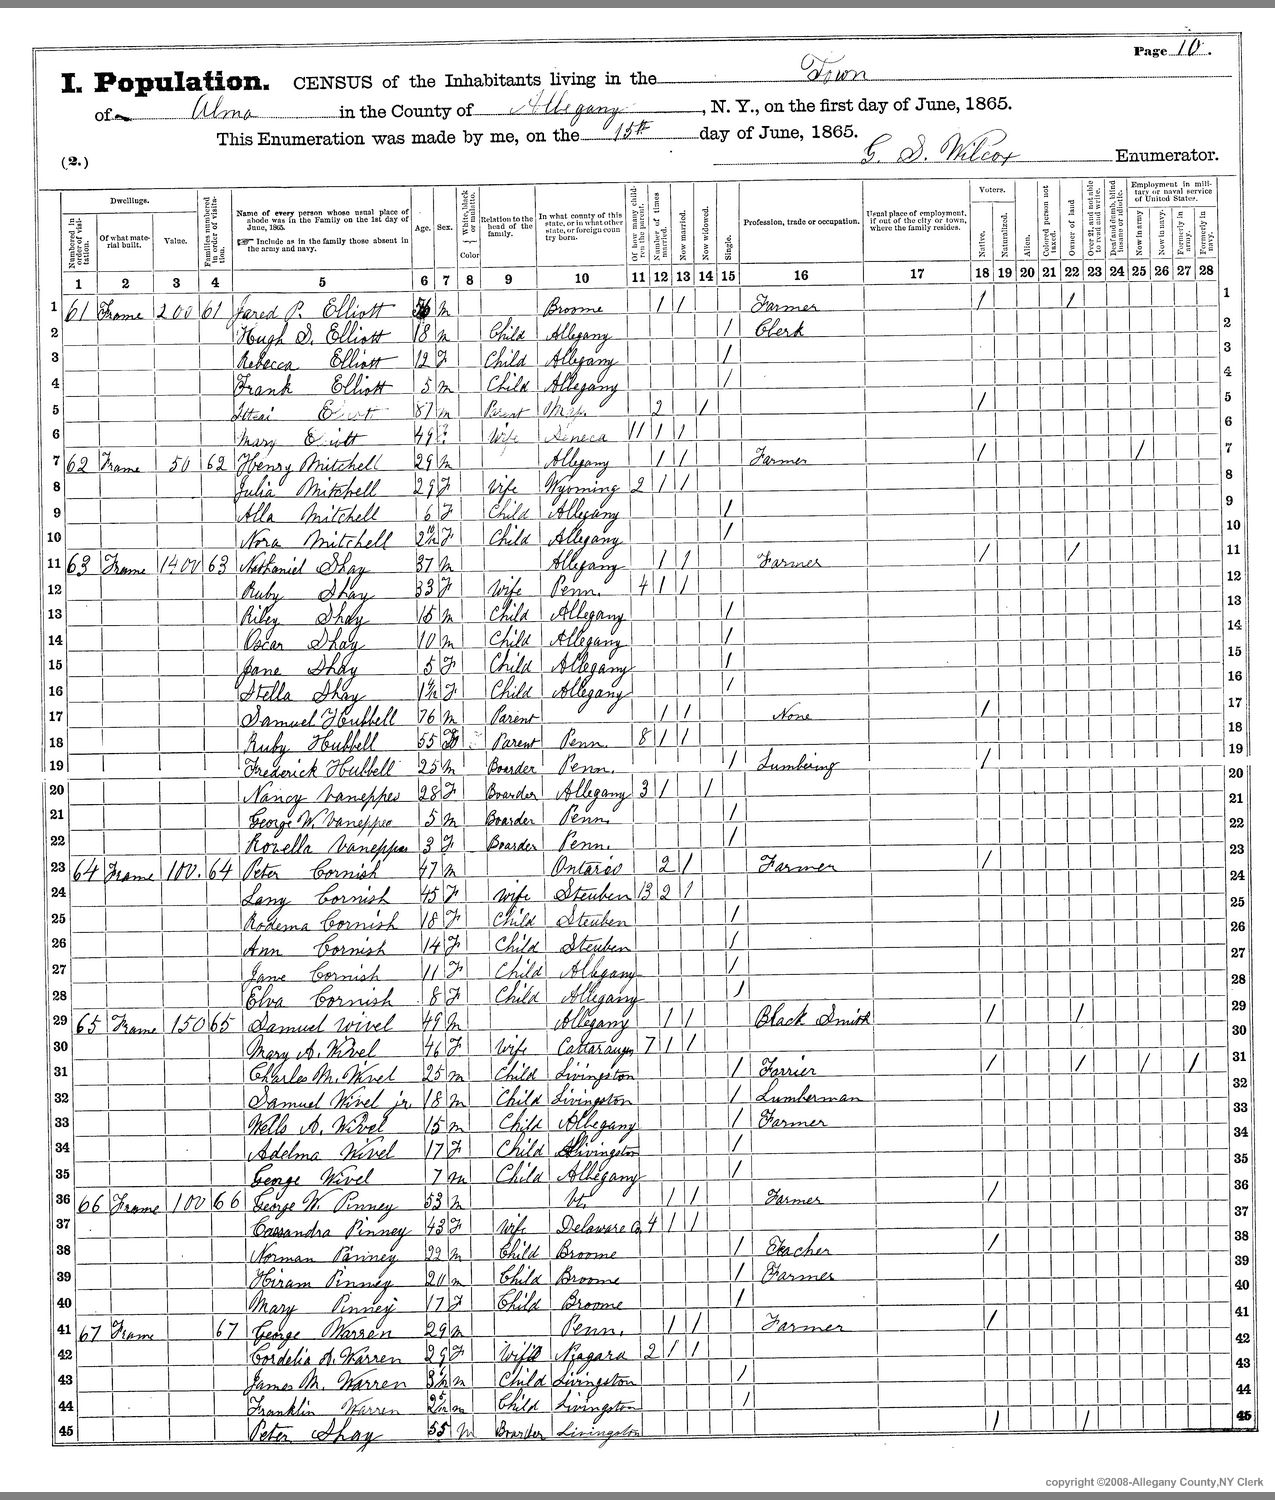 Page 10.
I. Population. CENSUS of the Inhabitants living in the Town
of Alma in the County of Allegany, N. Y., on the first day of June, 1865.
This Enumeration was made by me, on the 15th day of June, 1865.
(2.) G. S. Wilcox Enumerator.
Numbered in order of visitation. Dwellings. Of what material built. Value. Families numbered in order of visitation. Name of every person whose usual place of abode was in the Family on the 1st day of June, 1865. Include as in the family those absent in the army and navy. Age. Sex. White, black or mulatto. Color Relation to the head of the family. In what county of this state, or in what other state, or foreign country born. Of how many children the parent. Number of times married. Now married. Now widowed. Single. Profession, trade or occupation. Usual place of employment, if out of the city or town, where the family resides. Voters. Native. Naturalized. Alien. Colored person not taxed. Owner of land Over 21, and not able to read and write. Deaf and dumb, blind insane or idiotic. Employment in military or naval service of United States. Now in army. Now in navy. Formerly in army. Formerly in navy.
1 2 3 4 5 6 7 8 9 10 11 12 13 14 15 16 17 18 19 20 21 22 23 24 25 26 27 28
1 61 Frame 200 61 Jared P. Elliott M Broome / / Farmer / / 1
2 Hugh S. Elliott 18 M Child Allegany / Clerk 2
3 Rebecca Elliott 12 F Child Allegany / 3
4 Frank Elliott 5 M Child Allegany / 4
5 Elliott 87 M Parent 2 / / 5
6 Mary Elliott 49 Wife Seneca 11 / / 6
7 62 Frame 50 62 Henry Mitchell 29 M Allegany / / Farmer / / 7
8 Julia Mitchell 29 F Wife Wyoming 2 / / 8
9 Alla Mitchell 6 F Child Allegany / 9
10 Nora Mitchell F Child Allegany / 10
11 63 Frame 1400 63 Nathaniel Shay 37 M Allegany / / Farmer / / 11
12 Ruby Shay 33 F Wife Penn. 4 / / 12
13 Riley Shay 15 M Child Allegany / 13
14 Oscar Shay 10 M Child Allegany / 14
15 Jane Shay 5 F Child Allegany / 15
16 Stella Shay F Child Allegany / 16
17 Samuel Hubbell 76 M Parent / / None / 17
18 Ruby Hubbell 55 F Parent Penn. 8 / / 18
19 Frederick Hubbell 25 M Boarder Penn. / Lumbering / 19
20 Nancy Vaneppes 28 F Boarder Allegany 3 / / 20
21 George W. Vaneppes 5 M Boarder Penn. / 21
22 Rovella Vaneppes 3 F Boarder Penn. / 22
23 64 Frame 100. 64 Peter Cornish 47 M Ontario 2 / Farmer / 23
24 Lany Cornish 45 F Wife Steuben 13 2 / 24
25 Rodema Cornish 18 F Child Steuben / 25
26 Ann Cornish 14 F Child Steuben / 26
27 Jane Cornish 11 F Child Allegany / 27
28 Elva Cornish 8 F Child Allegany / 28
29 65 Frame 150 65 Samuel Wivel 49 M Allegany / / Black Smith / / 29
30 Mary A. Wivel 46 F Wife Cattaraugus 7 / / 30
31 Charles M. Wivel 25 M Child Livingston / Farrier / / / / 31
32 Samuel Wivel jr. 18 M Child Livingston / Lumberman 32
33 Wells A. Wivel 15 M Child Allegany / Farmer 33
34 Adelma Wivel 17 F Child Livingston / 34
35 George Wivel 7 M Child Allegany / 35
36 66 Frame 100 66 George W. Pinney 53 M Vt. / / Farmer / 36
37 Cassandra Pinney 43 F Wife Delaware Co. 4 / / 37
38 Norman Pinney 22 M Child Broome / Teacher / 38
39 Hiram Pinney 20 M Child Broome / Farmer 39
40 Mary Pinney 17 F Child Broome / 40
41 67 Frame 67 George Warren 29 M Penn. / / Farmer / 41
42 Cordelia A. Warren 29 F Wife Niagara 2 / / 42
43 James M. Warren M Child Livingston / 43
44 Franklin Warren M Child Livingston / 44
45 Peter Shay 55 M Boarder Livingston / / 45
copyright ©2008-Allegany County,NY Clerk